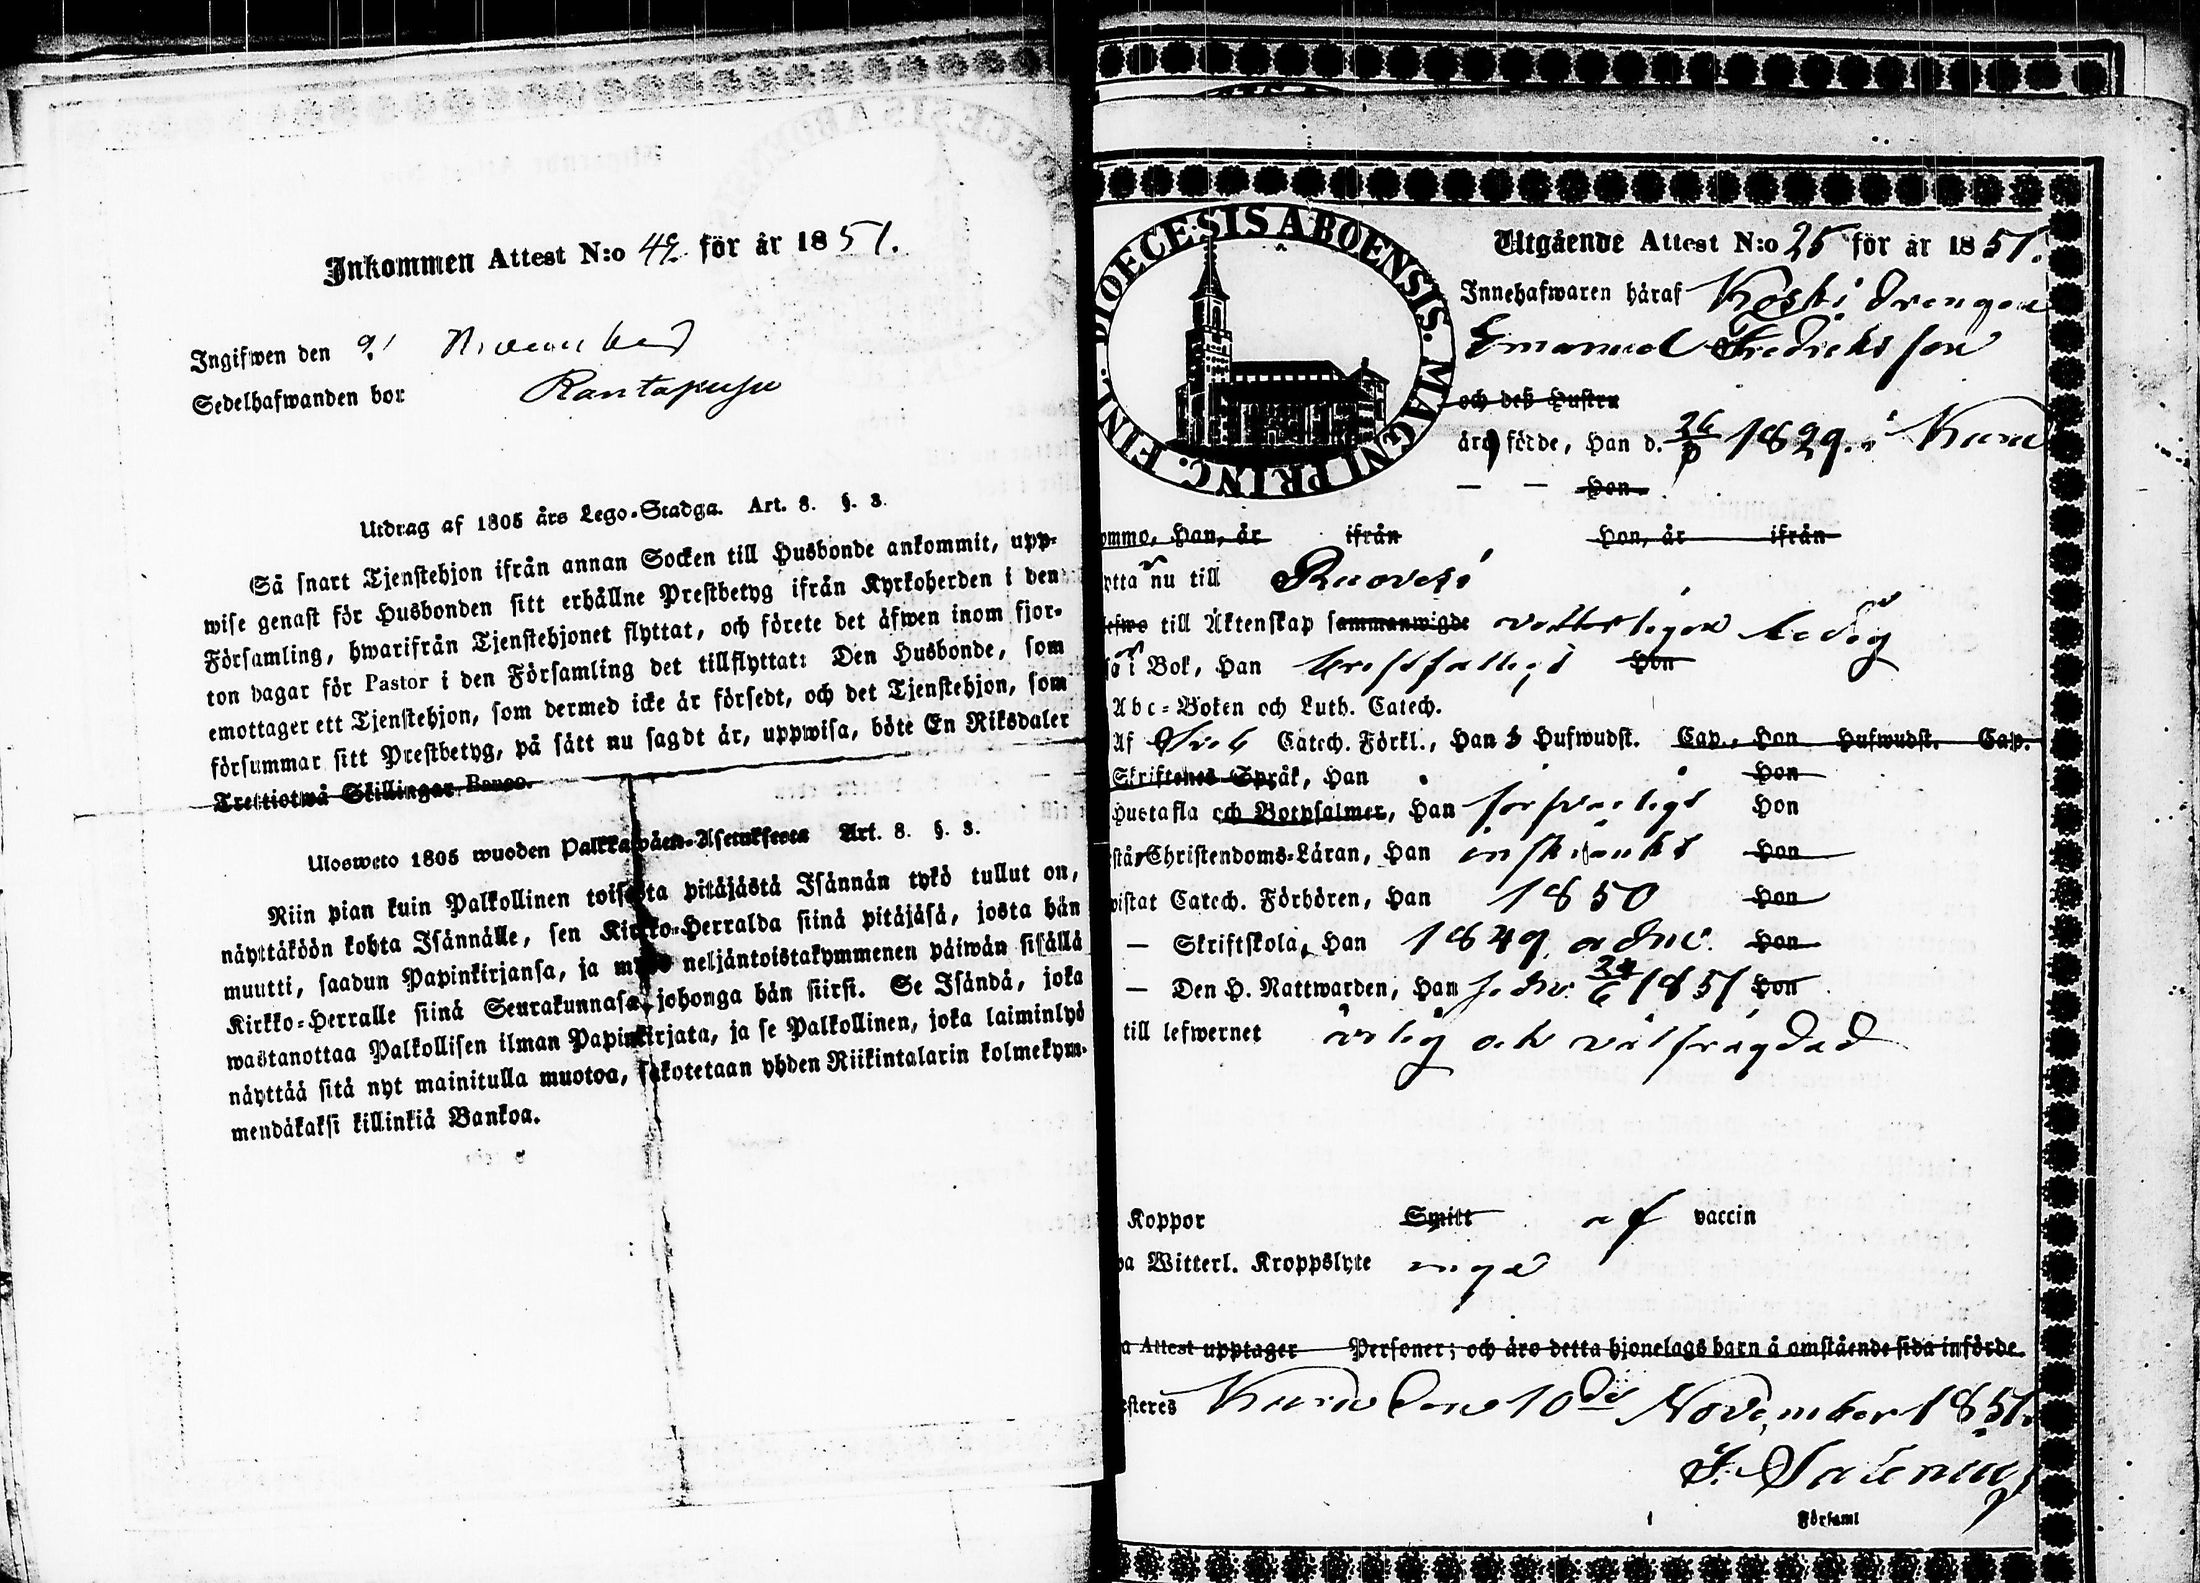 Inkommen Attest N:o 42 för år 1851.
Ingifwen den 9 November
Sedelhafwanden bor Rantapusu
Utdrag af 1805 års Lego-Stadga. Art. 8. §. 3.
Så snart Tjenstehjon ifrån annan Socken till Husbonde ankommit, upp-
wise genast för Husbonden sitt erhållne Prestbetyg ifrån Kyrkoherden i den
Församling, hwarifrån Tjenstehjonet flyttat, och förete det åfwen inom fjor-
ton dagar för Pastor i den Församling det tillflyttat: Den Husbonde, som
emottager ett Tjenstehjon, som dermed icke är försedt, och det Tjenstehjon, som
försummar sitt Prestbetyg, på sått nu sagdt är, uppwisa, böte En Riksdaler
Trettiotwå Skillingar Banco.
Ulosweto 1805 wuoden Palkkawäen-Asetuksesta Art. 8. §. 3.
Niin pian kuin Palkollinen toisesta pitäjästä Isännän tykö tullut on,
näyttäköön kohta Isännälle, sen Kirkko-Herralda siinä pitäjäsä, josta hän
muutti, saadun Papinkirjansa, ja myös neljäntoistakymmenen päiwän sisällä
Kirkko-Herralle siinä Seurakunnasa, johonga hän siirsi. Se Isändä, joka
wastanottaa Palkollisen ilman Papinkirjata, ja se Palkollinen, joka laiminlyö
näyttää sitä nyt mainitulla muotoa, sakotetaan yhden Riikintalarin kolmekym-
mendäkaksi killinkiä Bankoa.
DIOECESIS ABOENSIS. MAGNI PRINC. FINL.
Utgående Attest N:o 25 för år 1851.
Innehafwaren håraf Koski drengen
Emanuel Fredriksson
och deß Hustru
äro födde, Han d. 1829. i Kuru
— — Hon
ommo, Han, år ifrån Hon, år ifrån
ytta nu till Ruovesi
lefwo till Äktenskap sammanwigde vetterligen ledig
sa i Bok, Han Hon
Abc-Boken och Luth. Catech.
Af Sveb Catech. Förkl., Han 3 Hufwudst. Cap., Hon Hufwudst. Cap.
Skriftenes Språk, Han Hon
Hustafla och Botpsalmer, Han försvarligt Hon
stå Christendoms-Läran, Han inskränkt Hon
wistat Catech. Förhören, Han 1850 Hon
— Skriftskola, Han 1849 adm. Hon
— Den H. Nattwarden, Han 1851 Hon
till lefwernet ärlig och välfrägdad
Koppor Smitt af vaccin
pa Witterl. Kroppslyte inga
a Attest upptager Personer; och äro detta hjonelags barn å omstående sida införde.
esteres Kuru den 10de November 1851.
F. Salenius
i Församl